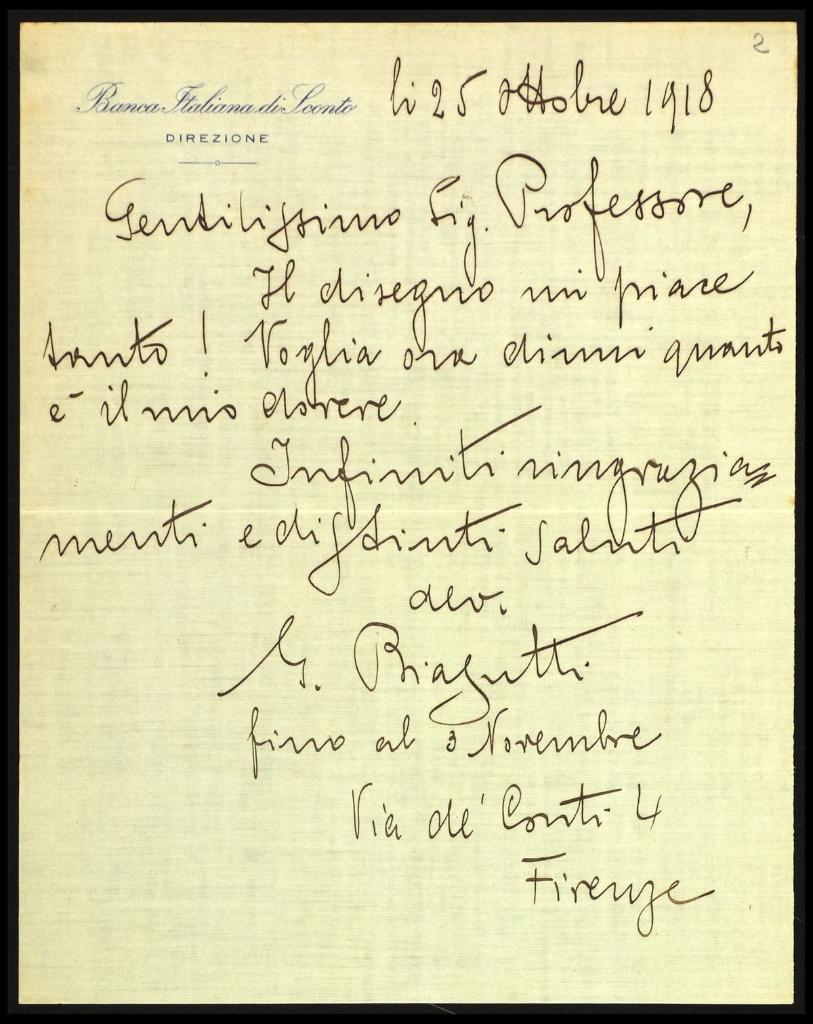 2
Banca Italiana di Sconto
DIREZIONE
li 25 Ottobre 1918
Gentilissimo Sig. Professore,
Il disegno mi piace
tanto! Voglia ora dirmi quanto
è il mio dovere.
Infiniti ringrazia=
menti e distinti saluti
dev.
G. Biagutti
fino al 3 Novembre
Via de' Conti 4
Firenze